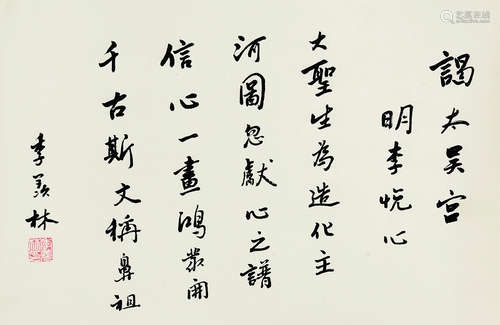 謁太昊宫
明李悦心
大聖生為造化主
河圖忽獻心之譜
信心一畫鴻蒙開
千古斯文稱鼻祖
季羨林